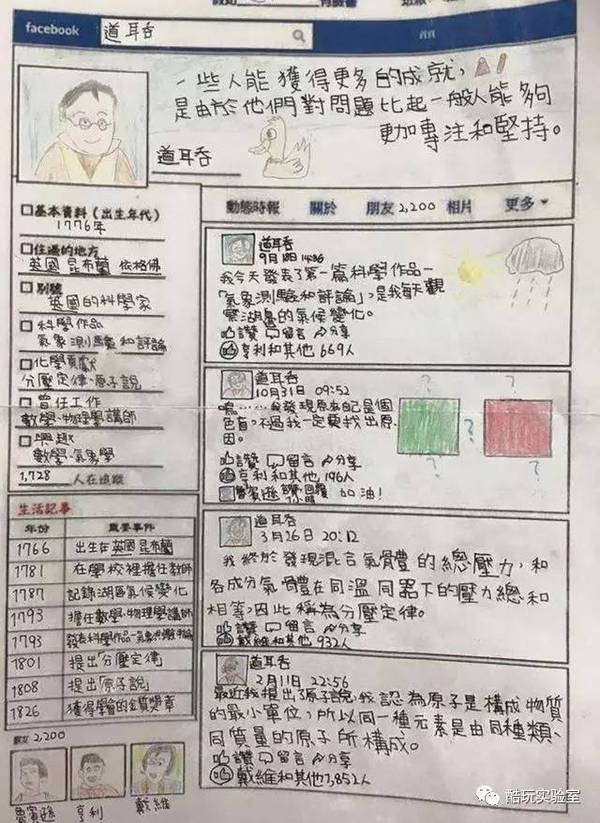 facebook 道耳吞
首頁
一些人能獲得更多的成就,
是由於他們對問題比起一般人能夠
更加專注和堅持。
道耳吞
基本資料(出生年代)
1776年
住過的地方
英國 昆布蘭 依格佛
別號
英國的科學家
科學作品
氣象測驗和評論
化學貢獻
分壓定律、原子說
曾任工作
數學、物理學講師
興趣
數學、氣象學
1,728 人在追蹤
生活記事
年份 重要事件
1766 出生在英國昆布蘭
1781 在學校裡擔任教師
1787 記錄湖區氣候變化
1793 擔任數學、物理學講師
1793 發表科學作品-氣象測驗和評論
1801 提出「分壓定律」
1808 提出「原子說」
1826 獲得學會的金質獎章
朋友 2,200
魯賓遜 亨利 戴維
動態時報 關於 朋友 2,200 相片 更多
道耳吞
9月18日 14:36
我今天發表了第一篇科學作品-
「氣象測驗和評論」,是我每天觀
察湖區的氣候變化。
讚 留言 分享
亨利和其他 669人
道耳吞
10月31日 09:52
嗚……我發現原來自己是個
色盲,不過我一定要找出原
因。
讚 留言 分享
亨利和其他 196人
魯賓遜 讚 回覆 加油!
? ? ? ? ?
道耳吞
3月26日 20:12
我終於發現混合氣體的總壓力,和
各成分氣體在同溫同器下的壓力總和
相等,因此稱為分壓定律。
讚 留言 分享
戴維和其他 932人
道耳吞
2月11日 22:56
最近我提出了原子說,我認為原子是構成物質
的最小單位,所以同一種元素是由同種類、
同質量的原子所構成。
讚 留言 分享
戴維和其他7,852人
酷玩实验室